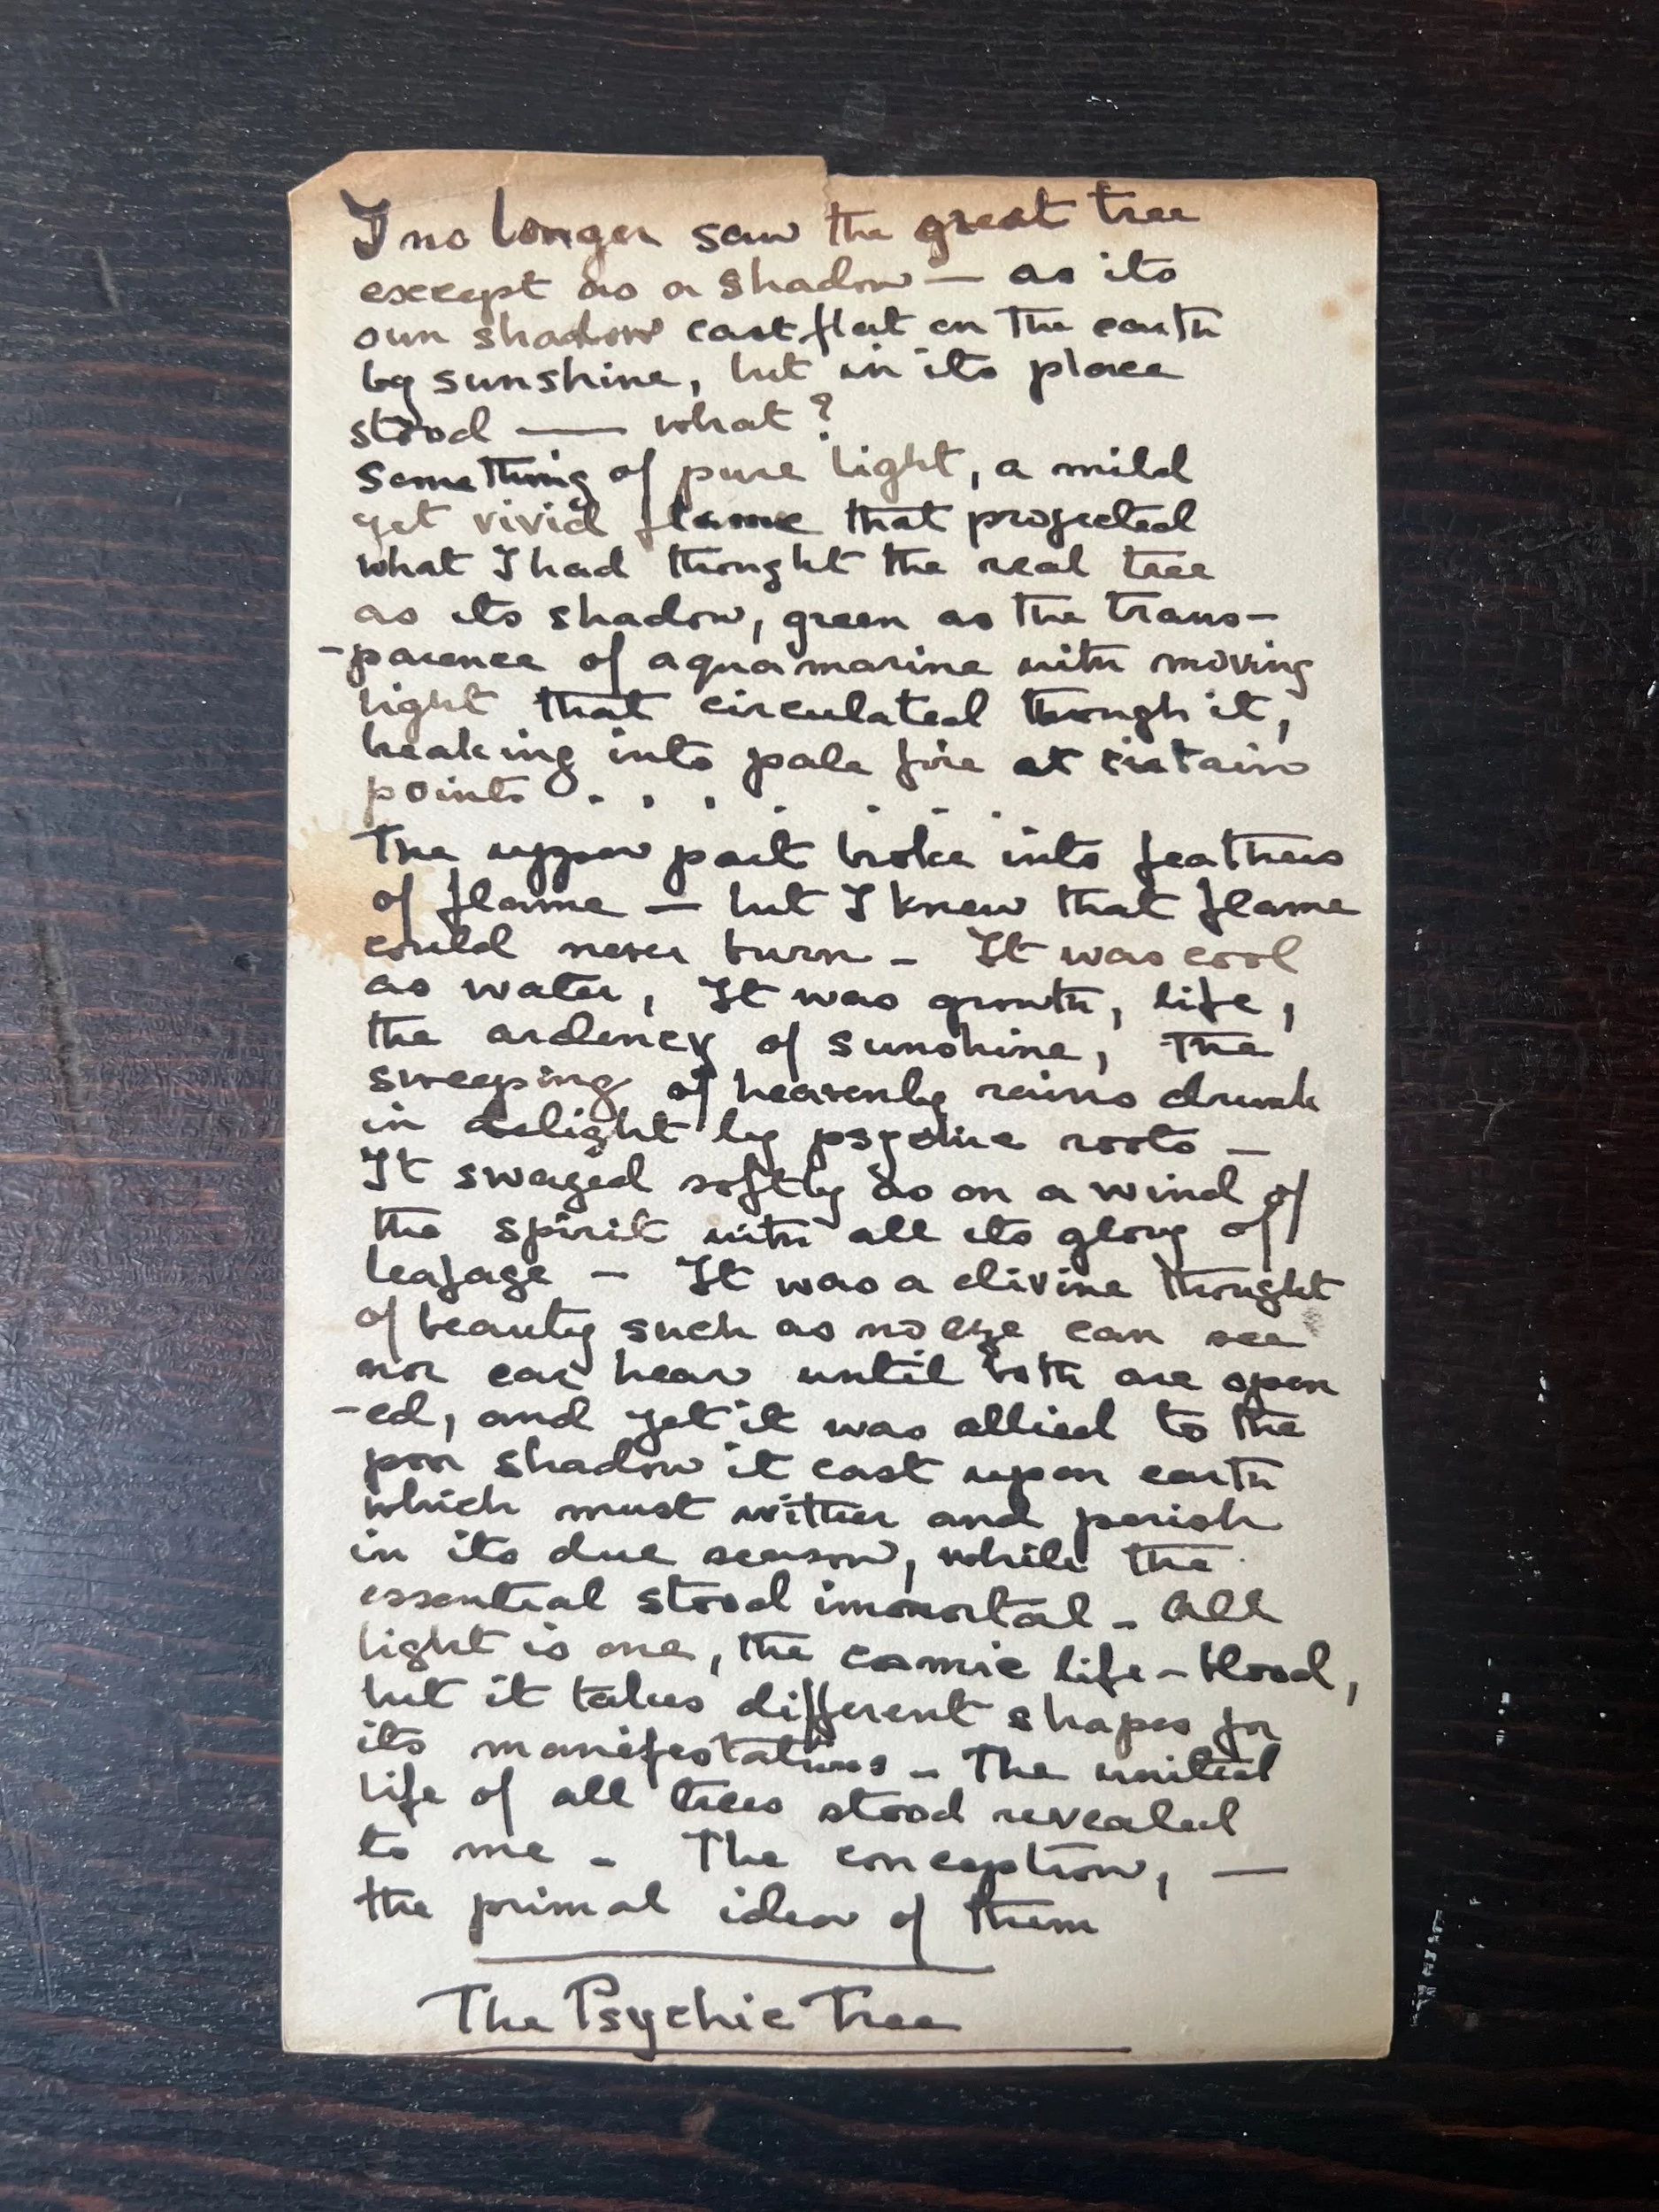 I no longer saw the great tree
except as a shadow — as its
own shadow cast flat on the earth
by sunshine, but in its place
stood — what?
Something of pure light, a mild
yet vivid flame that projected
what I had thought the real tree
as its shadow, green as the trans-
-parence of aquamarine with moving
light that circulated through it,
breaking into pale fire at certain
points . . . . . . .
The upper part broke into feathers
of flame — but I knew that flame
could never burn - It was cool
as water, It was growth, life,
the ardency of sunshine, the
sweeping of heavenly rains drunk
in delight by psychic roots -
It swayed softly as on a wind of
the spirit with all its glory of
leafage - It was a divine thought
of beauty such as no eye can see
nor ear hear until both are open
-ed, and yet it was allied to the
poor shadow it cast upon earth
which must wither and perish
in its due season, while the
essential stood immortal - All
light is one, the cosmic life-blood,
but it takes different shapes for
its manifestations - The united
life of all trees stood revealed
to me - The conception, —
the primal idea of them
The Psychic Tree